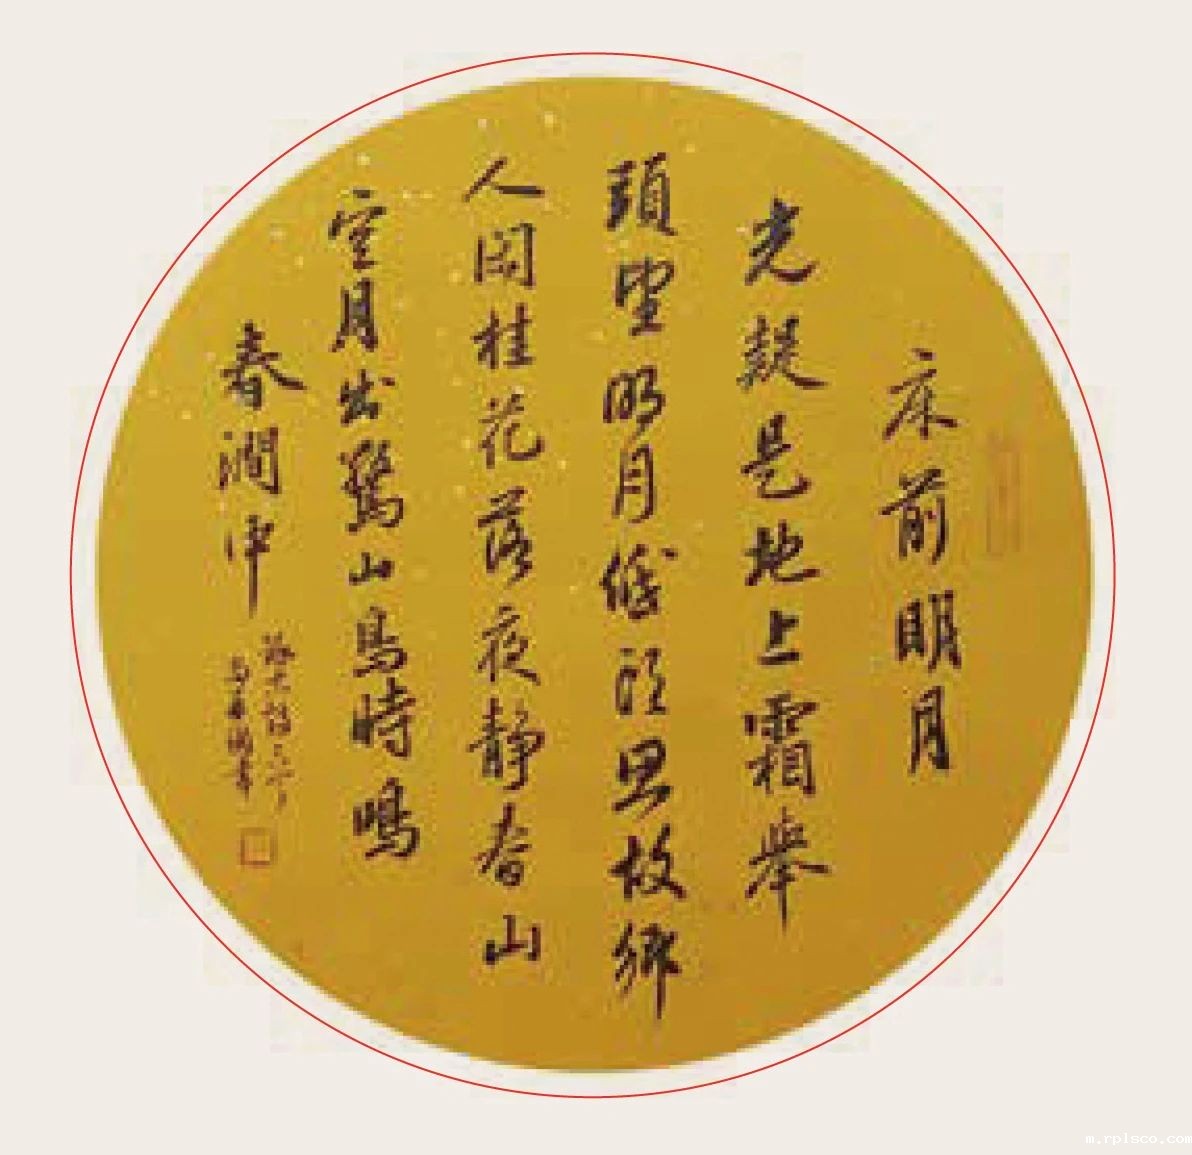 床前明月
光疑是地上霜舉
頭望明月低頭思故鄉
人閑桂花落夜靜春山
空月出驚山鳥時鳴
春澗中
m.rplsco.com